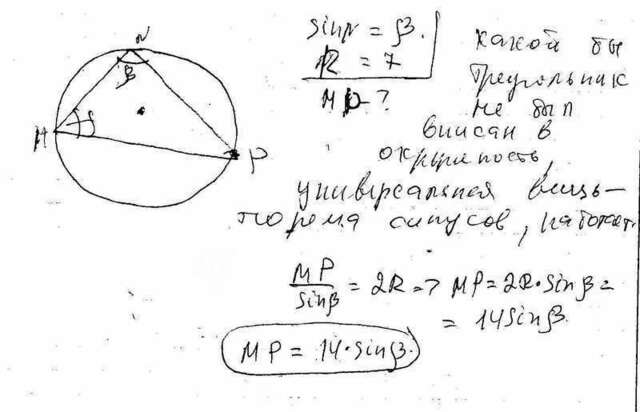 N
β
M
P
sinN = β.
R = 7
MP - ?
какой бы
треугольник
не был
вписан в
окружность,
универсальная вещь -
теорема синусов, работает.
MP/sinβ = 2R => MP = 2R·sinβ =
= 14sinβ
MP = 14·sinβ.